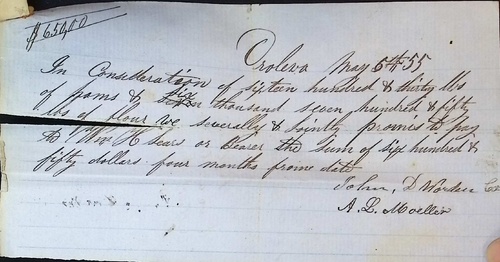 $650,00
Oroleva May 5th 55
In Consideration of sixteen hundred & thirty lbs
of hams & six thousand seven hundred & fifty
lbs of flour we severally & jointly promis to pay
to Wm H Sears or bearer the Sum of six hundred &
fifty dollars four months frome date
John, D Worden
A. L. Moeller